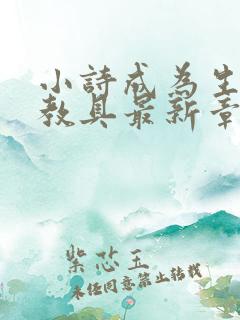 小詩成為生
教具最新章
紫芯玉
未經同意禁止轉載